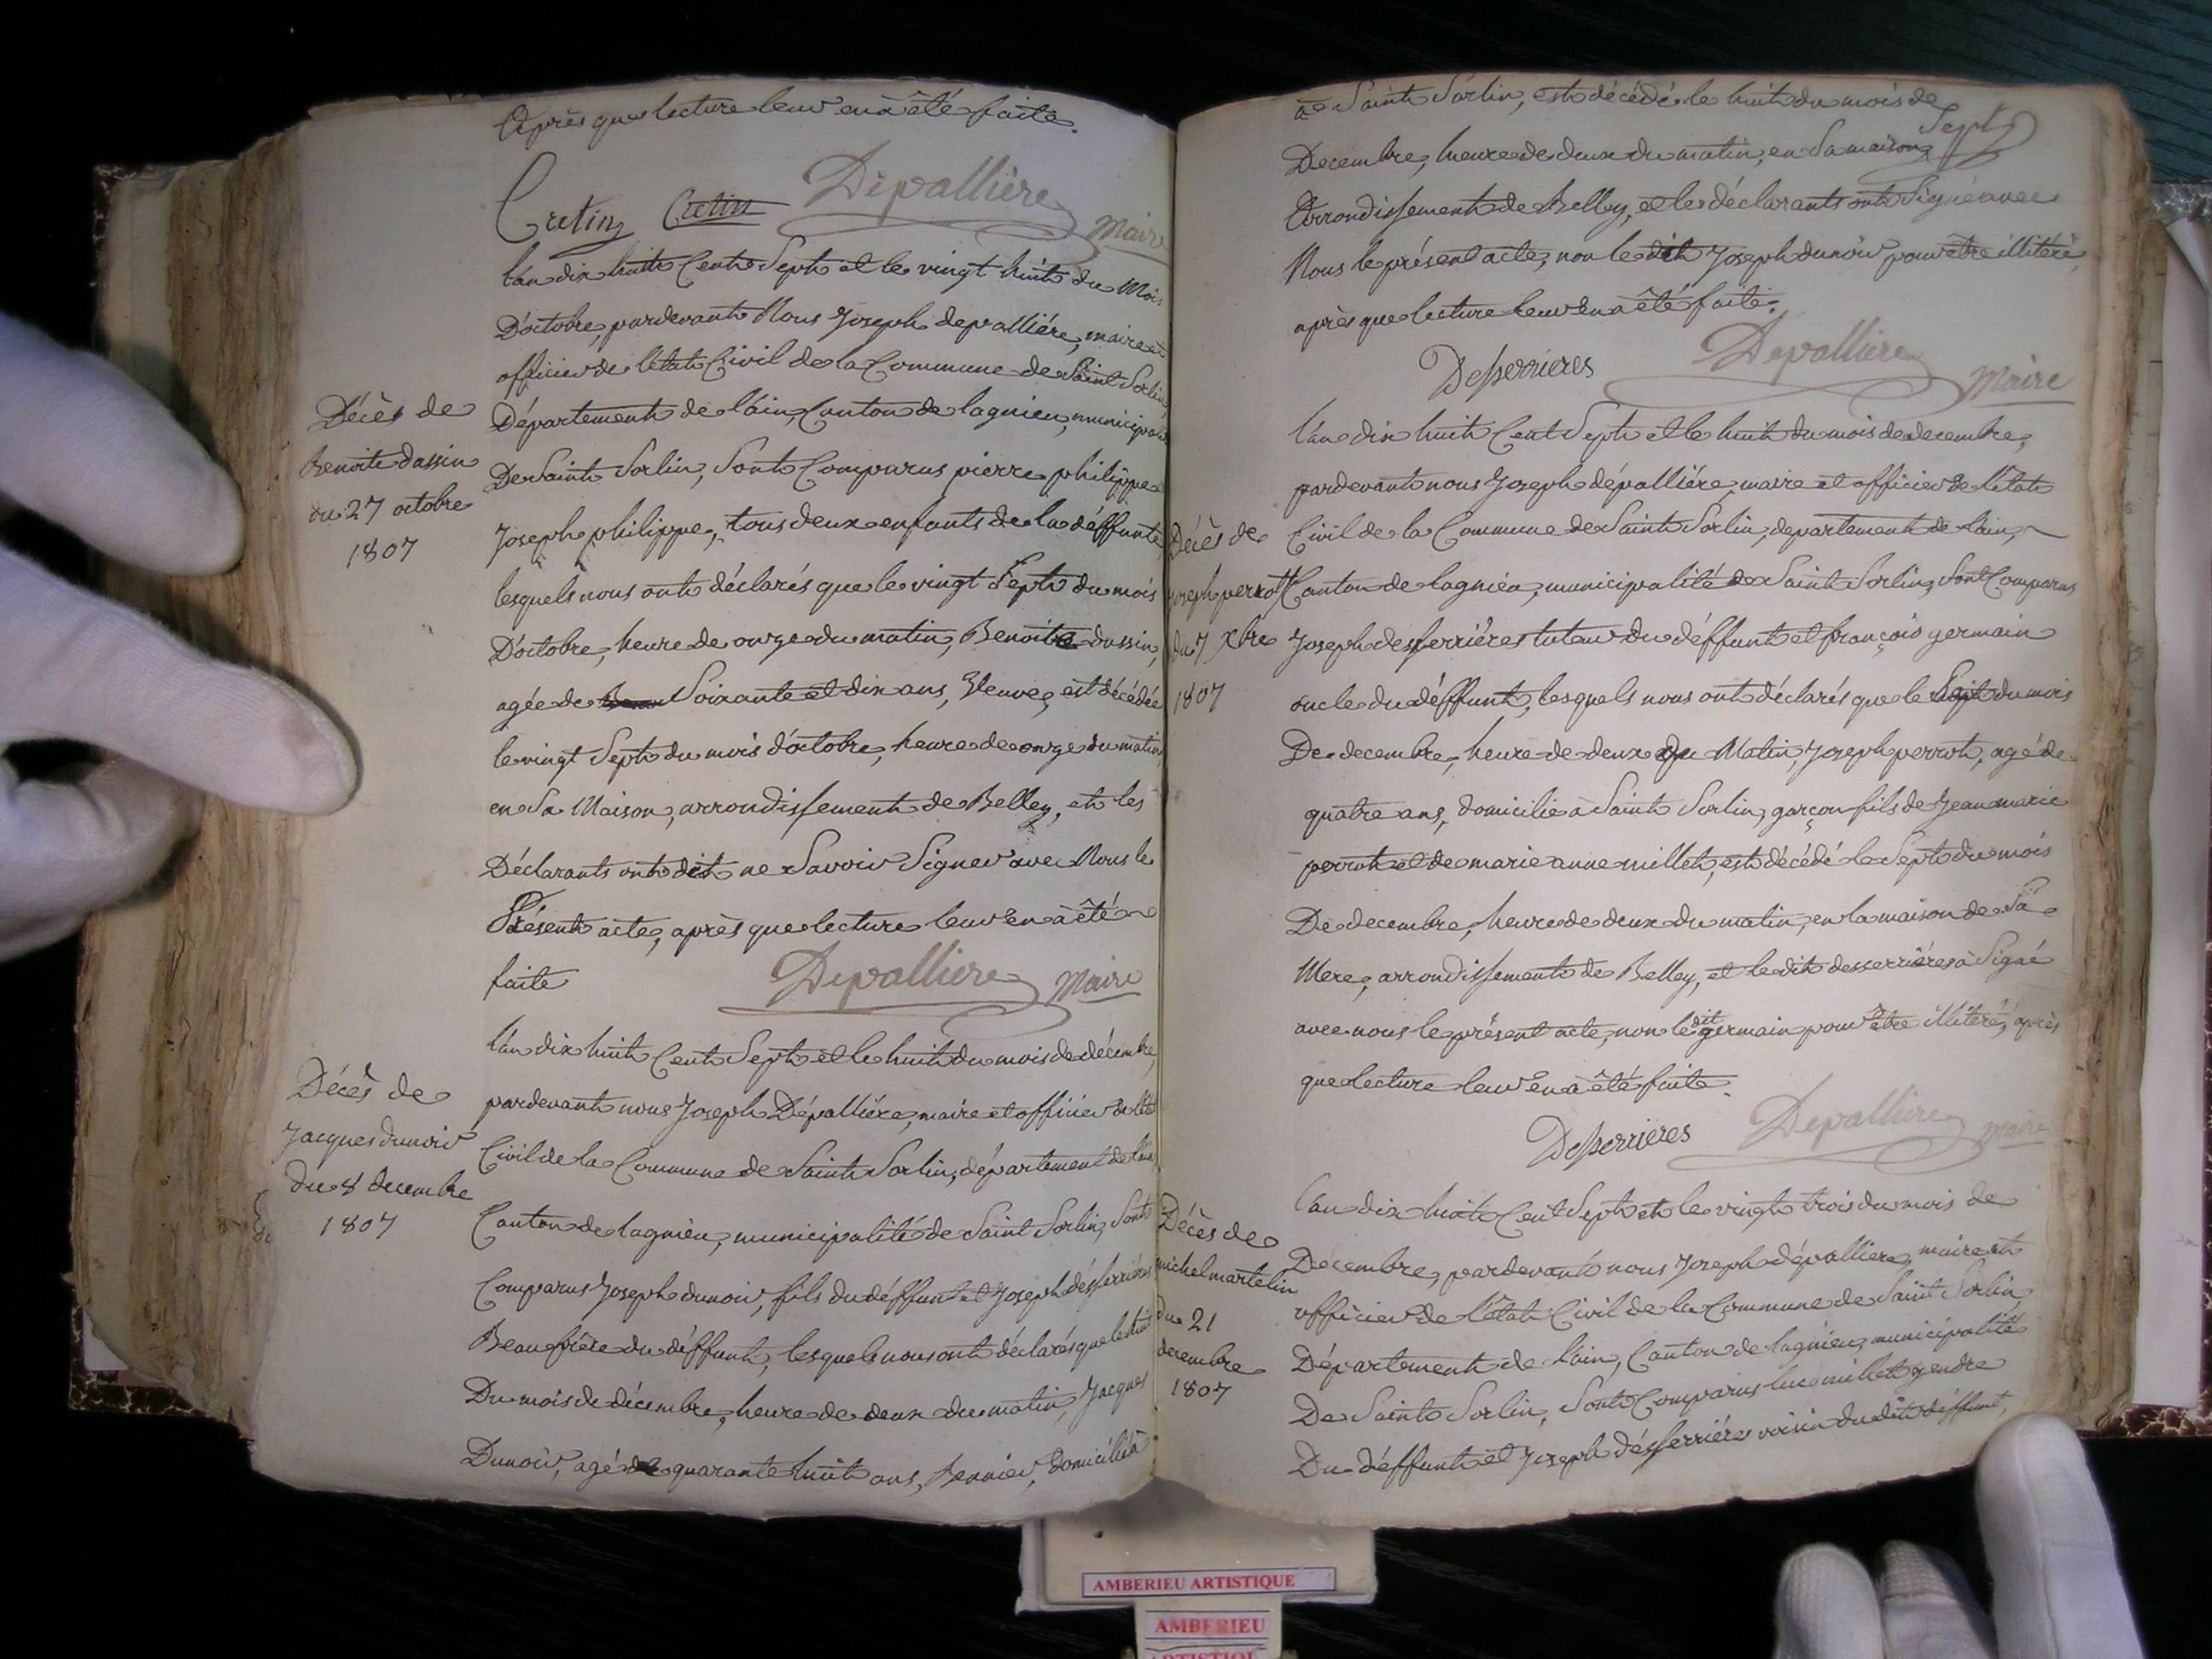 Après que lecture leur en a été faite.
Cretin Cretin Depallière
Maire
l'an dix huit Cent Sept et le vingt huit du Mois
D'octobre, pardevant Nous Joseph depalliére, maire et
officier de l'état Civil de la Commune de Saint Sorlin,
Département de l'ain, Canton de lagnieu, municipalité
De Saint Sorlin, Sont Comparus pierre philippe
Joseph philippe, tous deux enfants de la déffunte,
lesquels nous ont déclarés que le vingt Sept du mois
D'octobre, heure de onze du matin, Benoite dussin,
agée de Soixante et dix ans, Veuve, est décédée
le vingt Sept du mois d'octobre, heure de onze du matin,
en Sa Maison, arrondissement de Belley, et les
Déclarants ont dit ne Savoir Signer avec Nous le
Présent acte, après que lecture leur en a été
faite
Depalliere Maire
Décès de
Benoite dussin
du 27 octobre
1807
l'an dix huit Cent Sept et le huit du mois de décembre,
pardevant nous Joseph Dépalliére, maire et officier de l'état
Civil de la Commune de Saint Sorlin, département de l'ain
Canton de lagnieu, municipalité de Saint Sorlin, Sont
Comparus Joseph dunoir, fils du déffunt et Joseph désserriéres
Beaufrère du déffunt, lesquels nous ont déclarés que le huit
Du mois de décembre, heure de deux du matin, Jacques
Dunoir, agé de quarante huit ans, domicilié
Décès de
Jacques dunoir
du 8 decembre
1807
a Saint Sorlin, est décédé le huit du mois de
Sept
Decembre, heure de deux du matin, en Sa maison,
Arrondissement de Belley, et les déclarants ont Signé avec
Nous le présent acte, non le dit Joseph dunoir, pour être illitéré,
après que lecture leur en a été faite.
Desserrieres Depalliere
Maire
l'an dix huit Cent Sept et le huit du mois de decembre,
pardevant nous Joseph dépalliére, maire et officier de l'état
Civil de la Commune de Saint Sorlin, departement de l'ain,
Canton de lagnieu, municipalité de Saint Sorlin, Sont Comparus
Joseph desserriéres tuteur du déffunt et françois germain
oncle du déffunt, lesquels nous ont déclarés que le Sept du mois
De decembre, heure de deux du Matin, Joseph perrot, agé de
quatre ans, domicilié à Saint Sorlin, garçon fils de Jean marie
perrot et de marie anne millet, est décédé le Sept du mois
De decembre, heure de deux du matin, en la maison de Sa
Mere, arrondissement de Belley, et le dit desserriéres à Signé
avec nous le présent acte, non le dit germain pour être illitéré, après
que lecture leur en a été faite.
Desserrieres Depalliere maire
Décès de
Joseph perrot
du 7 Xbre
1807
l'an dix huit Cent Sept et le vingt trois du mois de
Décembre, pardevant nous Joseph dépalliere, maire et
officier de l'état Civil de la Commune de Saint Sorlin,
Département de l'ain, Canton de lagnieu, municipalité
De Saint Sorlin, Sont Comparus luc millet gendre
Du déffunt et Joseph désserriéres voisin du dit déffunt,
Décès de
michel martelin
du 21
decembre
1807
AMBERIEU ARTISTIQUE
AMBERIEU
ARTISTIQUE